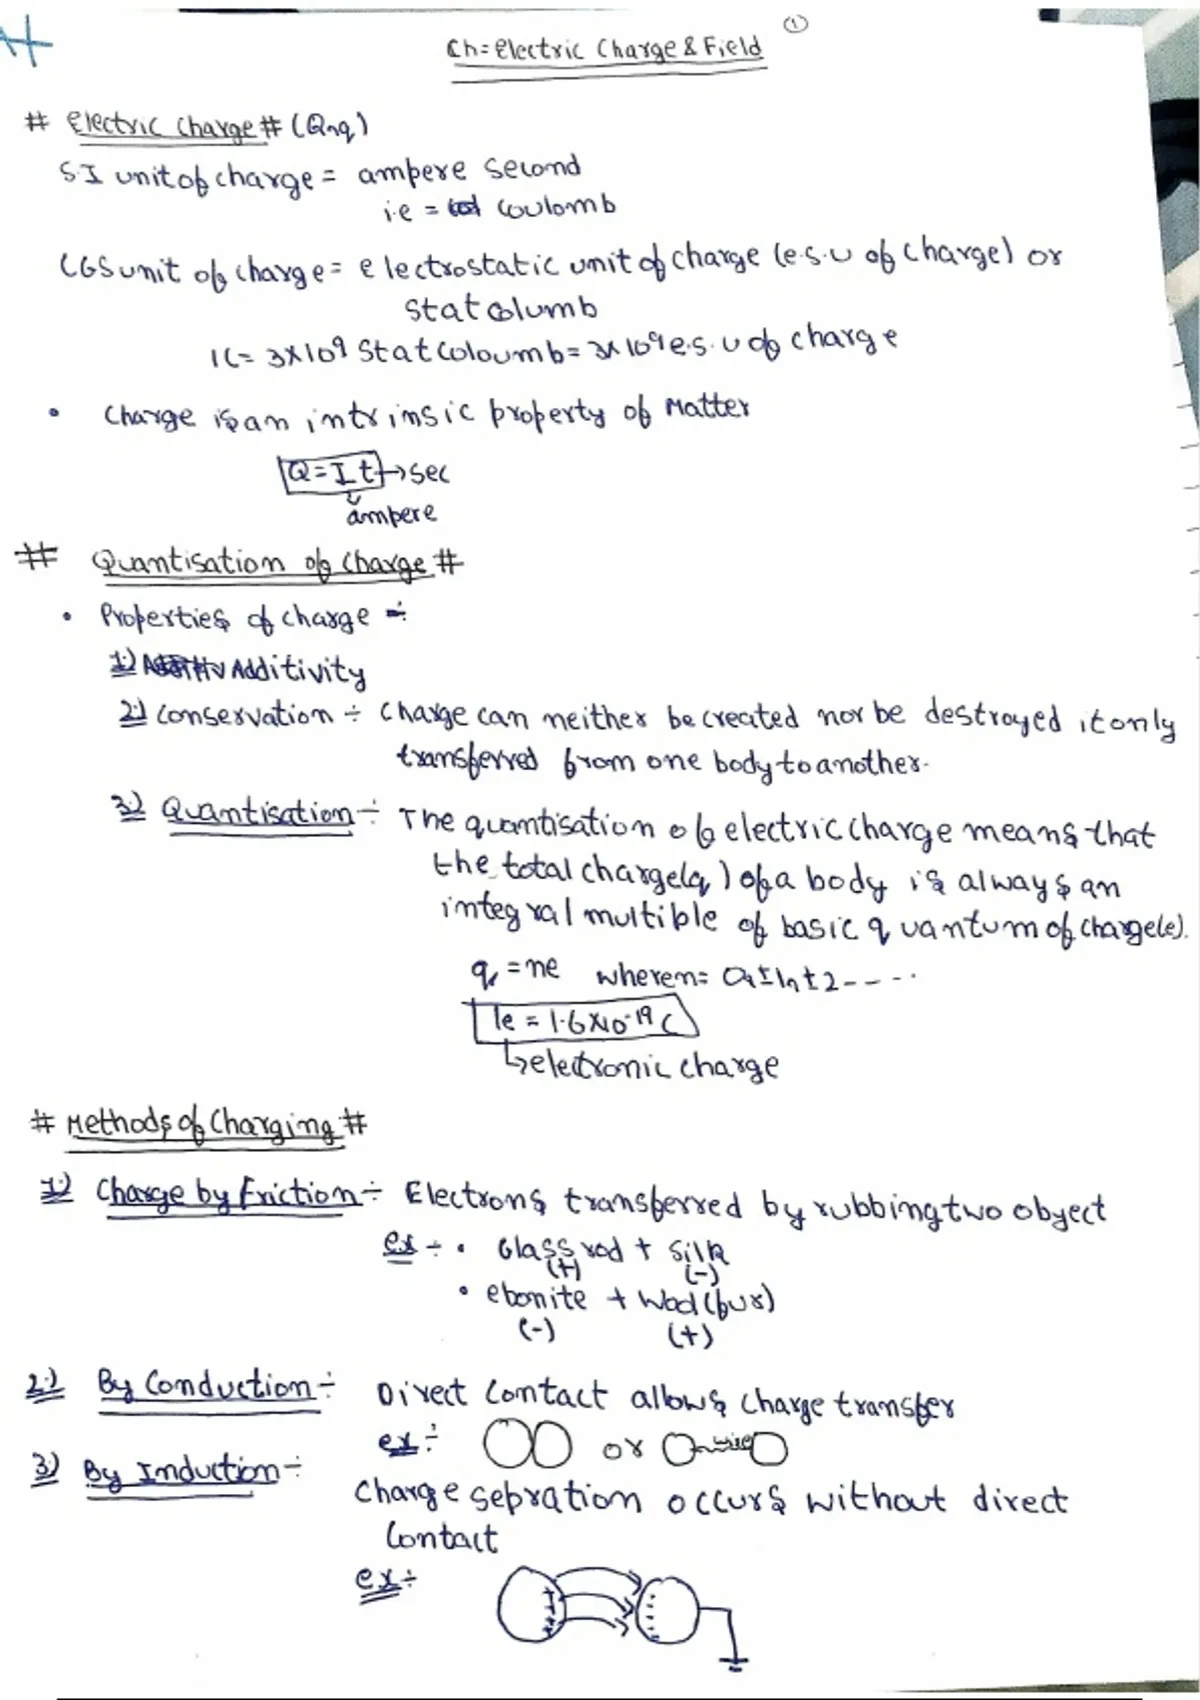 ①
Ch = Electric Charge & Field
# Electric Charge # (Q, q)
S.I unit of charge = ampere second
i.e = coulomb
CGS unit of charge = electrostatic unit of charge (e.s.u of charge) or
stat columb
1C = 3×10⁹ Stat Coloumb = 3×10⁹ e.s.u of charge
• Charge is an intrinsic property of Matter
Q = I t → sec
ampere
# Quantisation of charge #
• Properties of charge ÷
1.) Additivity
2.) Conservation ÷ Charge can neither be created nor be destroyed it only
transferred from one body to another.
3.) Quantisation ÷ The quantisation of electric charge means that
the total charge (q) of a body is always an
integral multible of basic quantum of charge (e).
q = ne where n = 0, ±1, ±2 - - - -
1e = 1.6×10⁻¹⁹ C
↳ electronic charge
# Methods of Charging #
1.) Charge by Friction ÷ Electrons transferred by rubbing two obyect
ex ÷ • Glass rod + Silk
(+) (-)
• ebonite + Wool (fur)
(-) (+)
2.) By Conduction ÷ Direct Contact allows Charge transfer
ex ÷ or wire
3.) By Induction ÷
Charge sepration occurs without direct
Contact
ex ÷